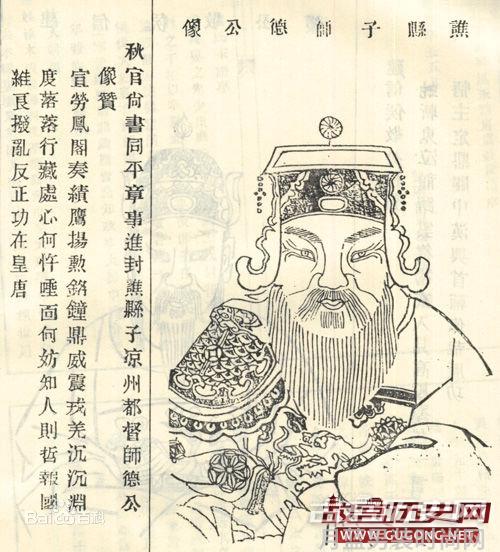 譙縣子師德公像
秋官尚書同平章事進封譙縣子凉州都督師德公
像贊
宣勞鳳閣奏績鷹揚勲銘鐘鼎威震戎羌沉沉淵
度落落行藏處心何忤唾面何妨知人則哲報國
維良撥亂反正功在皇唐
Bai百科
故宫历史网
WWW.GUGONG.NET